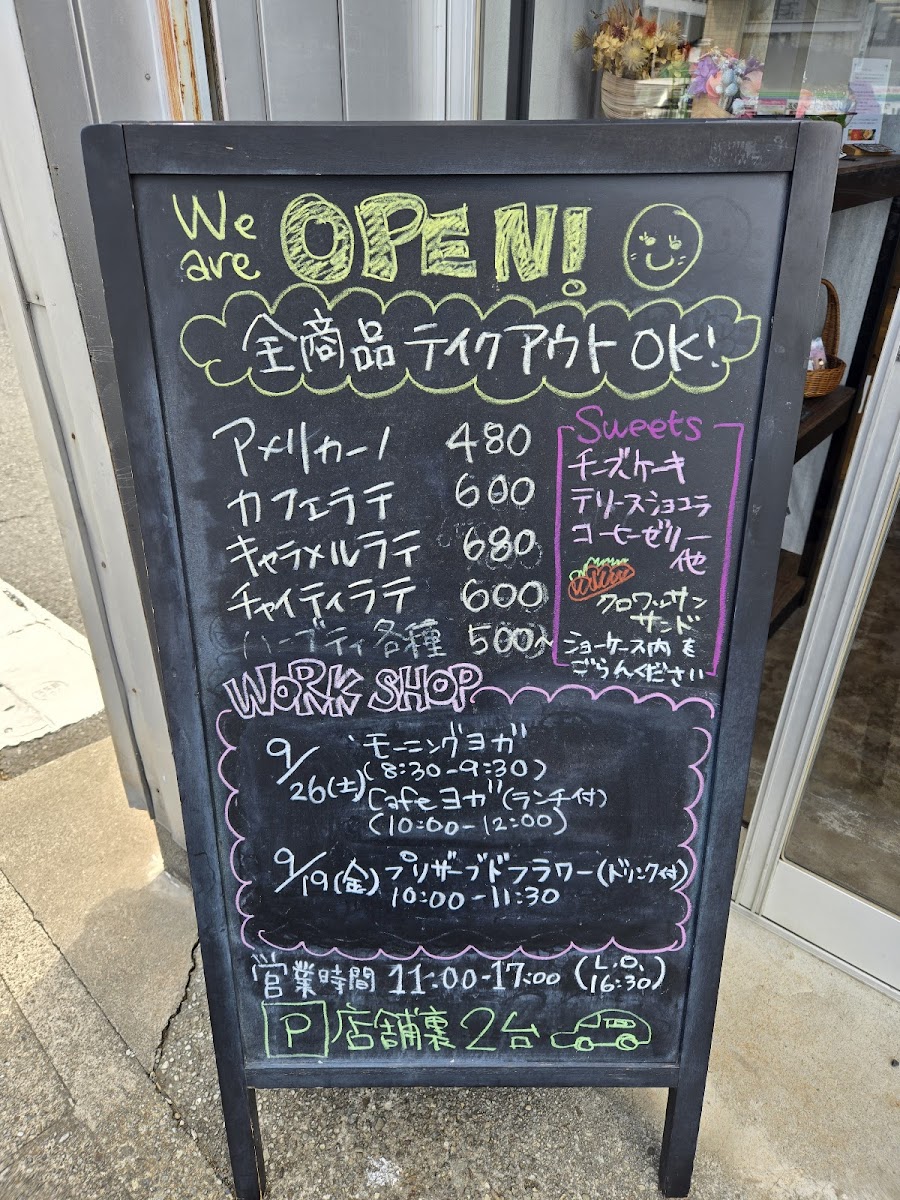 We are OPEN!
全商品 テイクアウト OK!
アメリカーノ 480
カフェラテ 600
キャラメルラテ 680
チャイティラテ 600
ハーブティ各種 500
Sweets
チーズケーキ
テリーヌショコラ
コーヒーゼリー
他
クロワッサン
サンド
ショーケース内を
ごらんください
WORK SHOP
9/26(土) モーニングヨガ
(8:30-9:30)
Cafeヨガ(ランチ付)
(10:00-12:00)
9/19(金) プリザーブドフラワー(ドリンク付)
10:00-11:30
営業時間 11:00-17:00 (L.O. 16:30)
P 店舗裏 2台